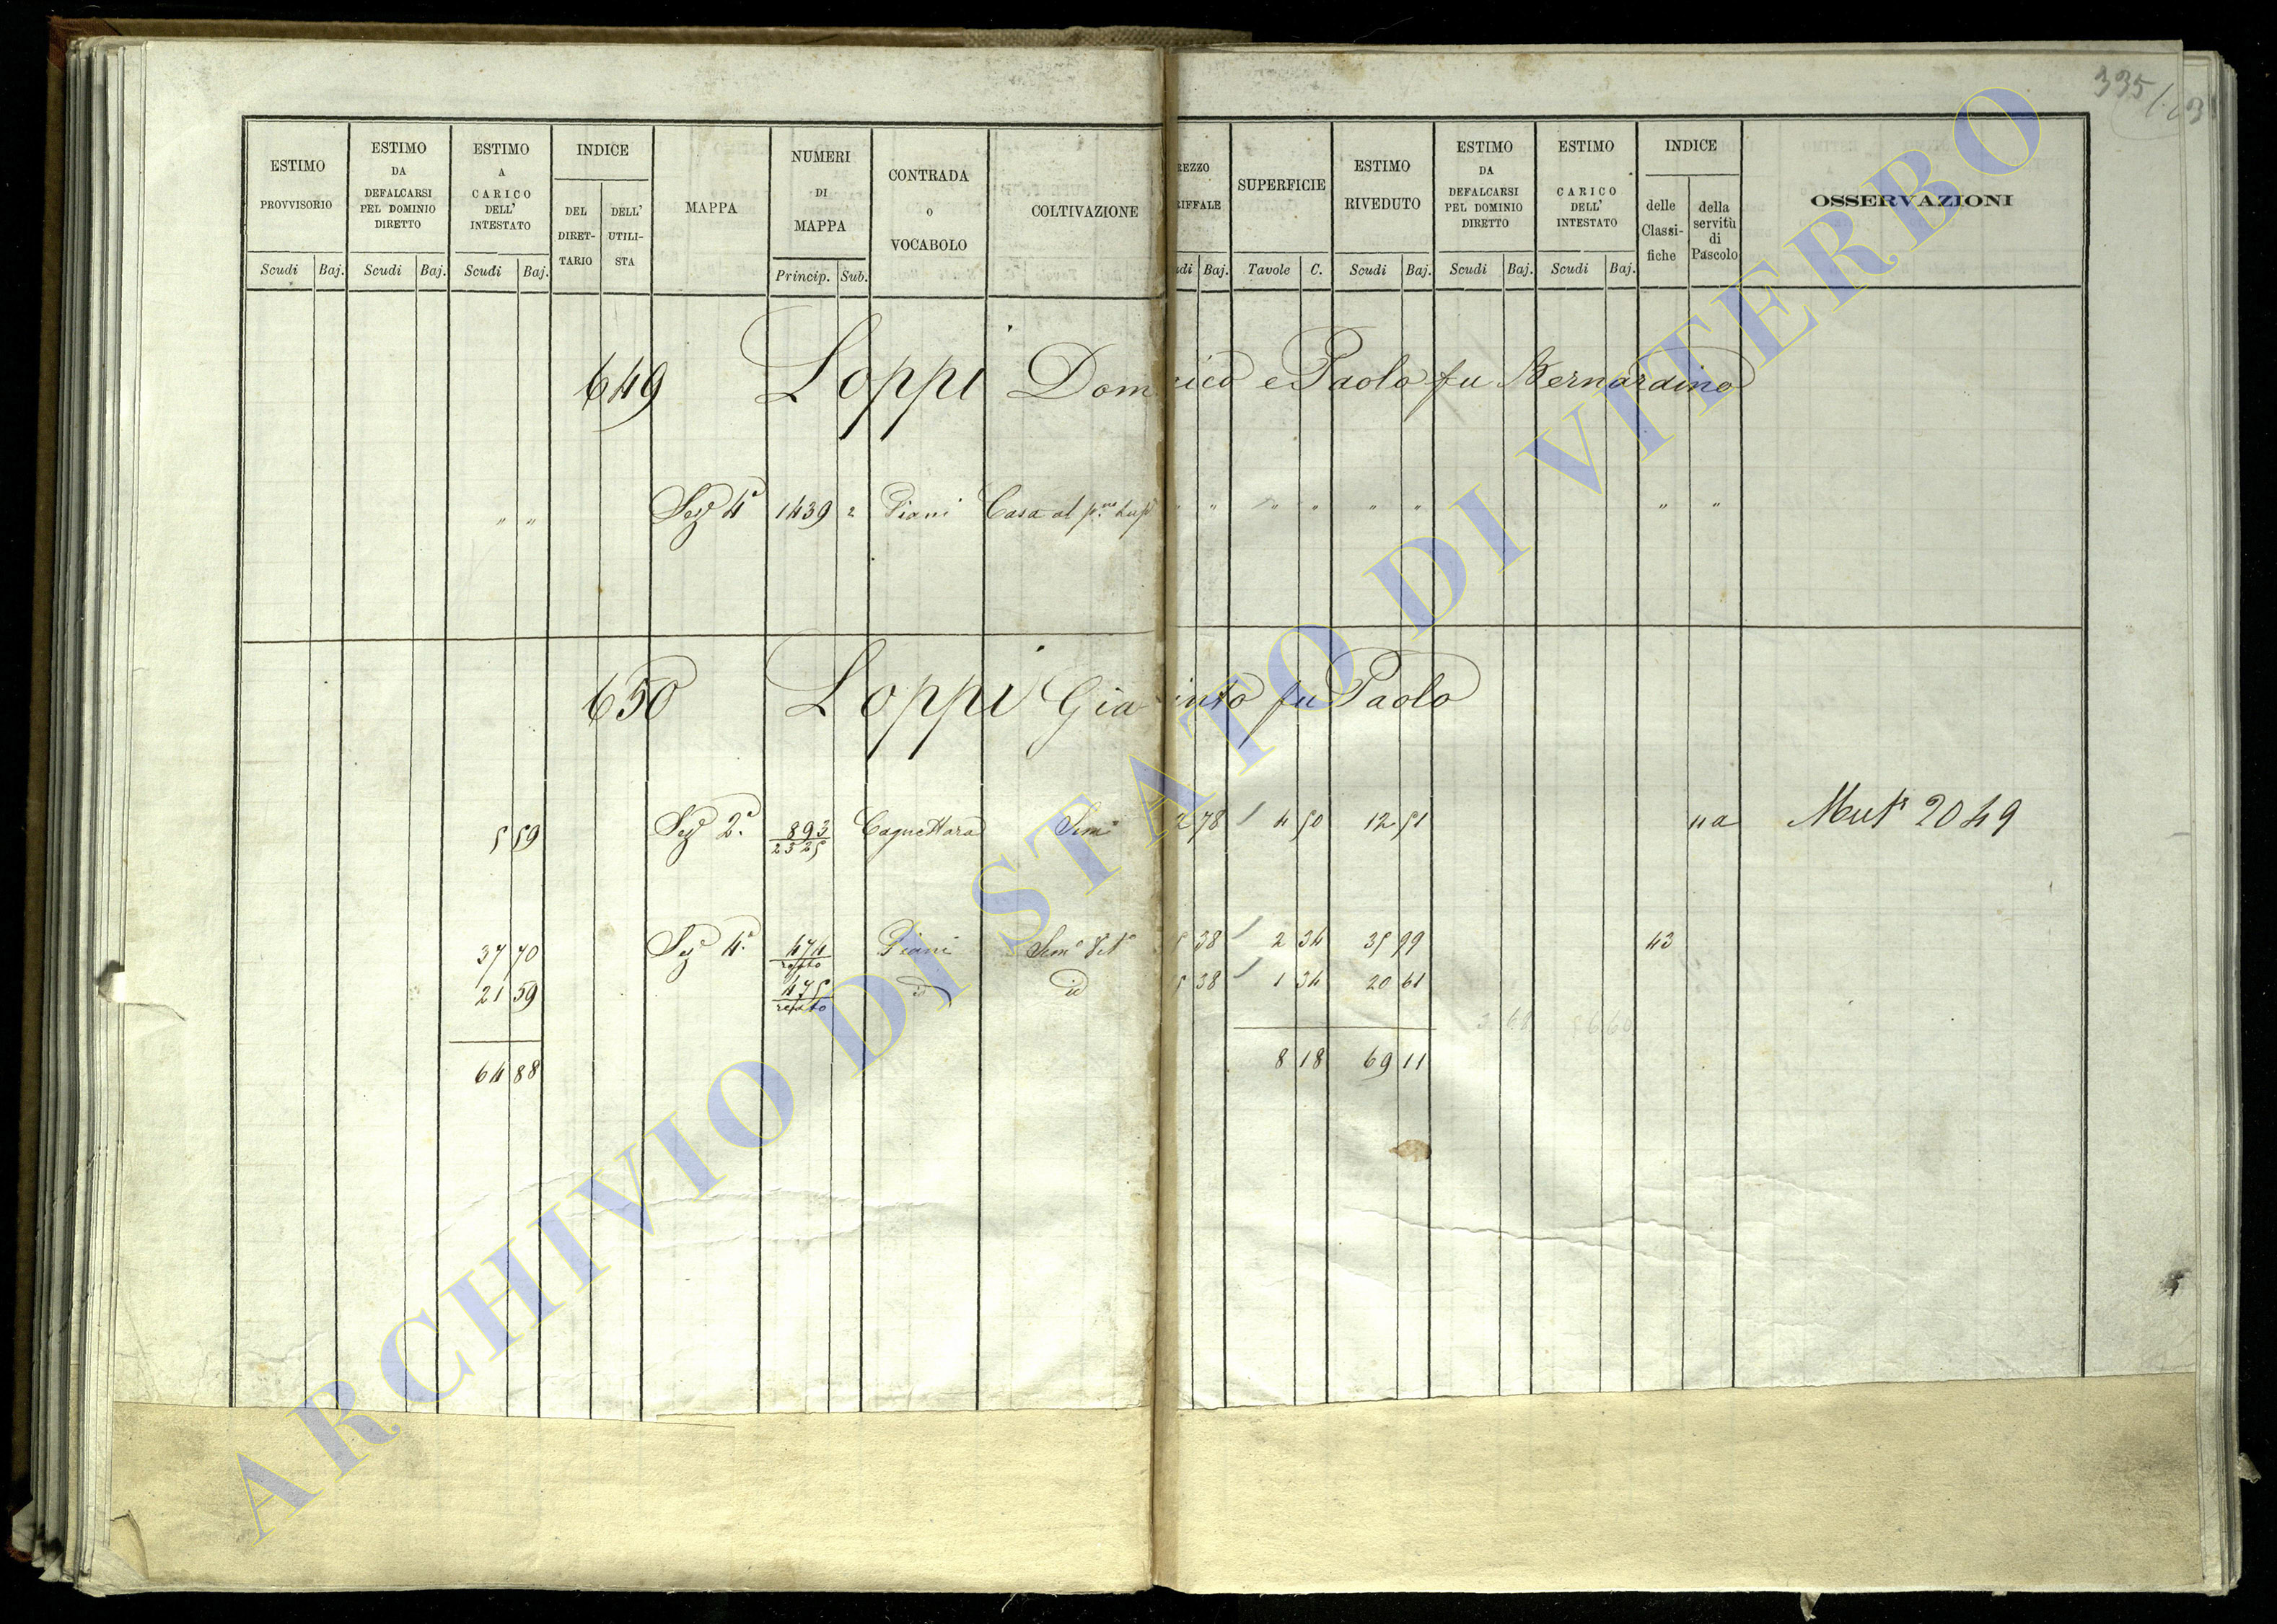 335
ESTIMO PROVVISORIO Scudi Baj.
ESTIMO DA DEFALCARSI PEL DOMINIO DIRETTO Scudi Baj.
ESTIMO A CARICO DELL' INTESTATO Scudi Baj.
INDICE DEL DIRET- TARIO DELL' UTILI- STA
MAPPA
NUMERI DI MAPPA Princip. Sub.
CONTRADA O VOCABOLO
COLTIVAZIONE
REZZO RIFFALE udi Baj.
SUPERFICIE Tavole C.
ESTIMO RIVEDUTO Scudi Baj.
ESTIMO DA DEFALCARSI PEL DOMINIO DIRETTO Scudi Baj.
ESTIMO CARICO DELL' INTESTATO Scudi Baj.
INDICE delle Classi- fiche della servitù di Pascolo
OSSERVAZIONI
649 Loppi Dom nico e Paolo fu Bernardino
" " Sezᵉ 4ᵃ 1439 2 Piani Casa al pᵐᵒ " " " " " " " "
650 Loppi Gia into fu Paolo
5 59 Sezᵉ 2ᵃ 893 2 78 4 50 12 51 na Mutᵃ 2049
2325
37 70 Sezᵉ 4ᵃ 474 Piani Semᵒ Vitᵒ 5 38 2 34 35 99 43
resto
21 59 475 id id 5 38 1 34 20 61
resto
64 88 8 18 69 11
ARCHIVIO DI STATO DI VITERBO